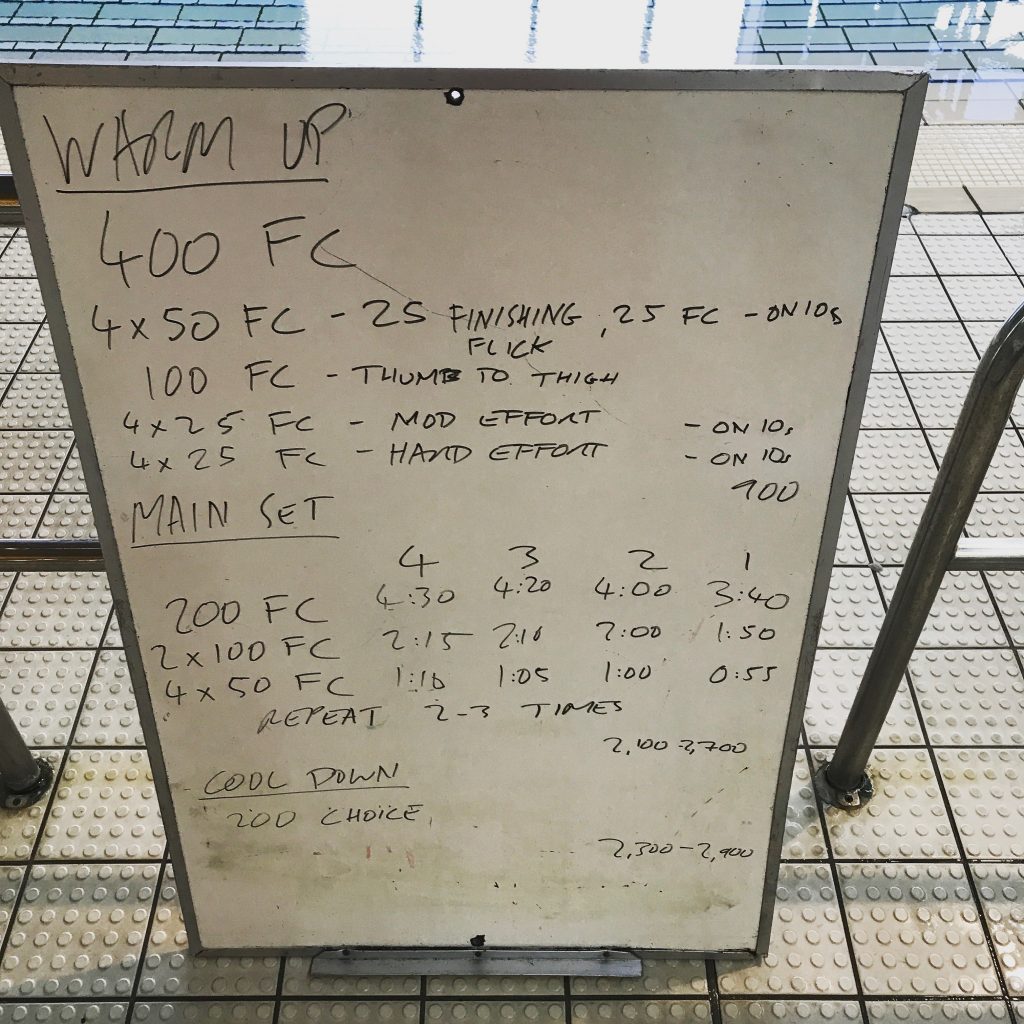 WARM UP
400 FC
4 x 50 FC - 25 FINISHING FLICK, 25 FC - ON 10s
100 FC - THUMB TO THIGH
4 x 25 FC - MOD EFFORT - ON 10s
4 x 25 FC - HARD EFFORT - ON 10s
900
MAIN SET
4 3 2 1
200 FC 4:30 4:20 4:00 3:40
2 x 100 FC 2:15 2:10 2:00 1:50
4 x 50 FC 1:10 1:05 1:00 0:55
REPEAT 2-3 TIMES
2,100-2,700
COOL DOWN
200 CHOICE
2,300-2,900